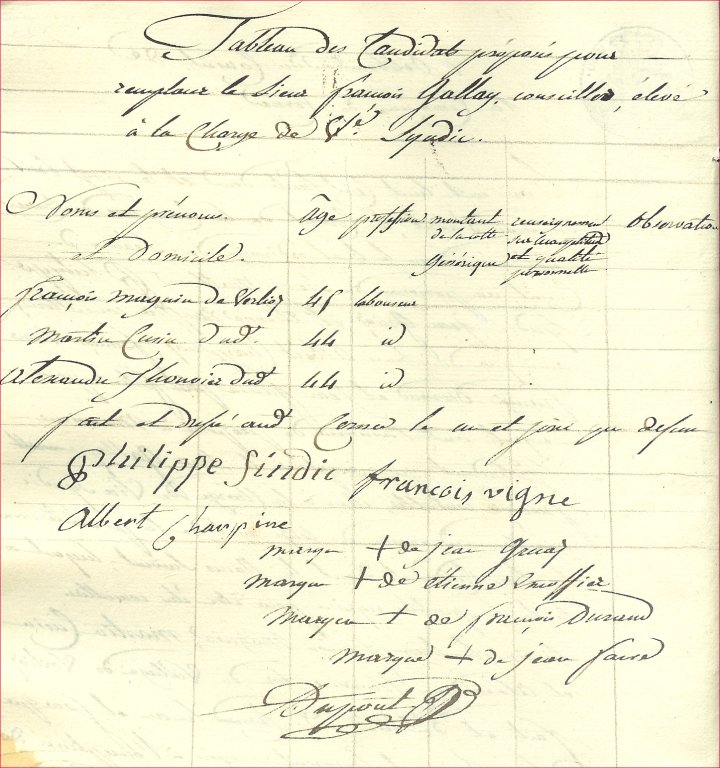 Tableau des Candidats proposés pour
remplacer le Sieur françois Gallay, conseiller, élevé
à la Charge de Syndic.
Noms et prénoms. âge profession montant renseignement Observation
et Domicile. de la cotte sur leur
Générique et qualité
personnelle
françois magnin de 45 laboureur
martin Cusin dud. 44 id
Alexandre dud. 44 id
fait et dressé aud. Cernex le an et jour que dessus
philippe Sindic françois vigne
Albert Chaupine
marque + de jean
marque + de étienne
marque + de françois Durand
marque + de jean favre
Dupont